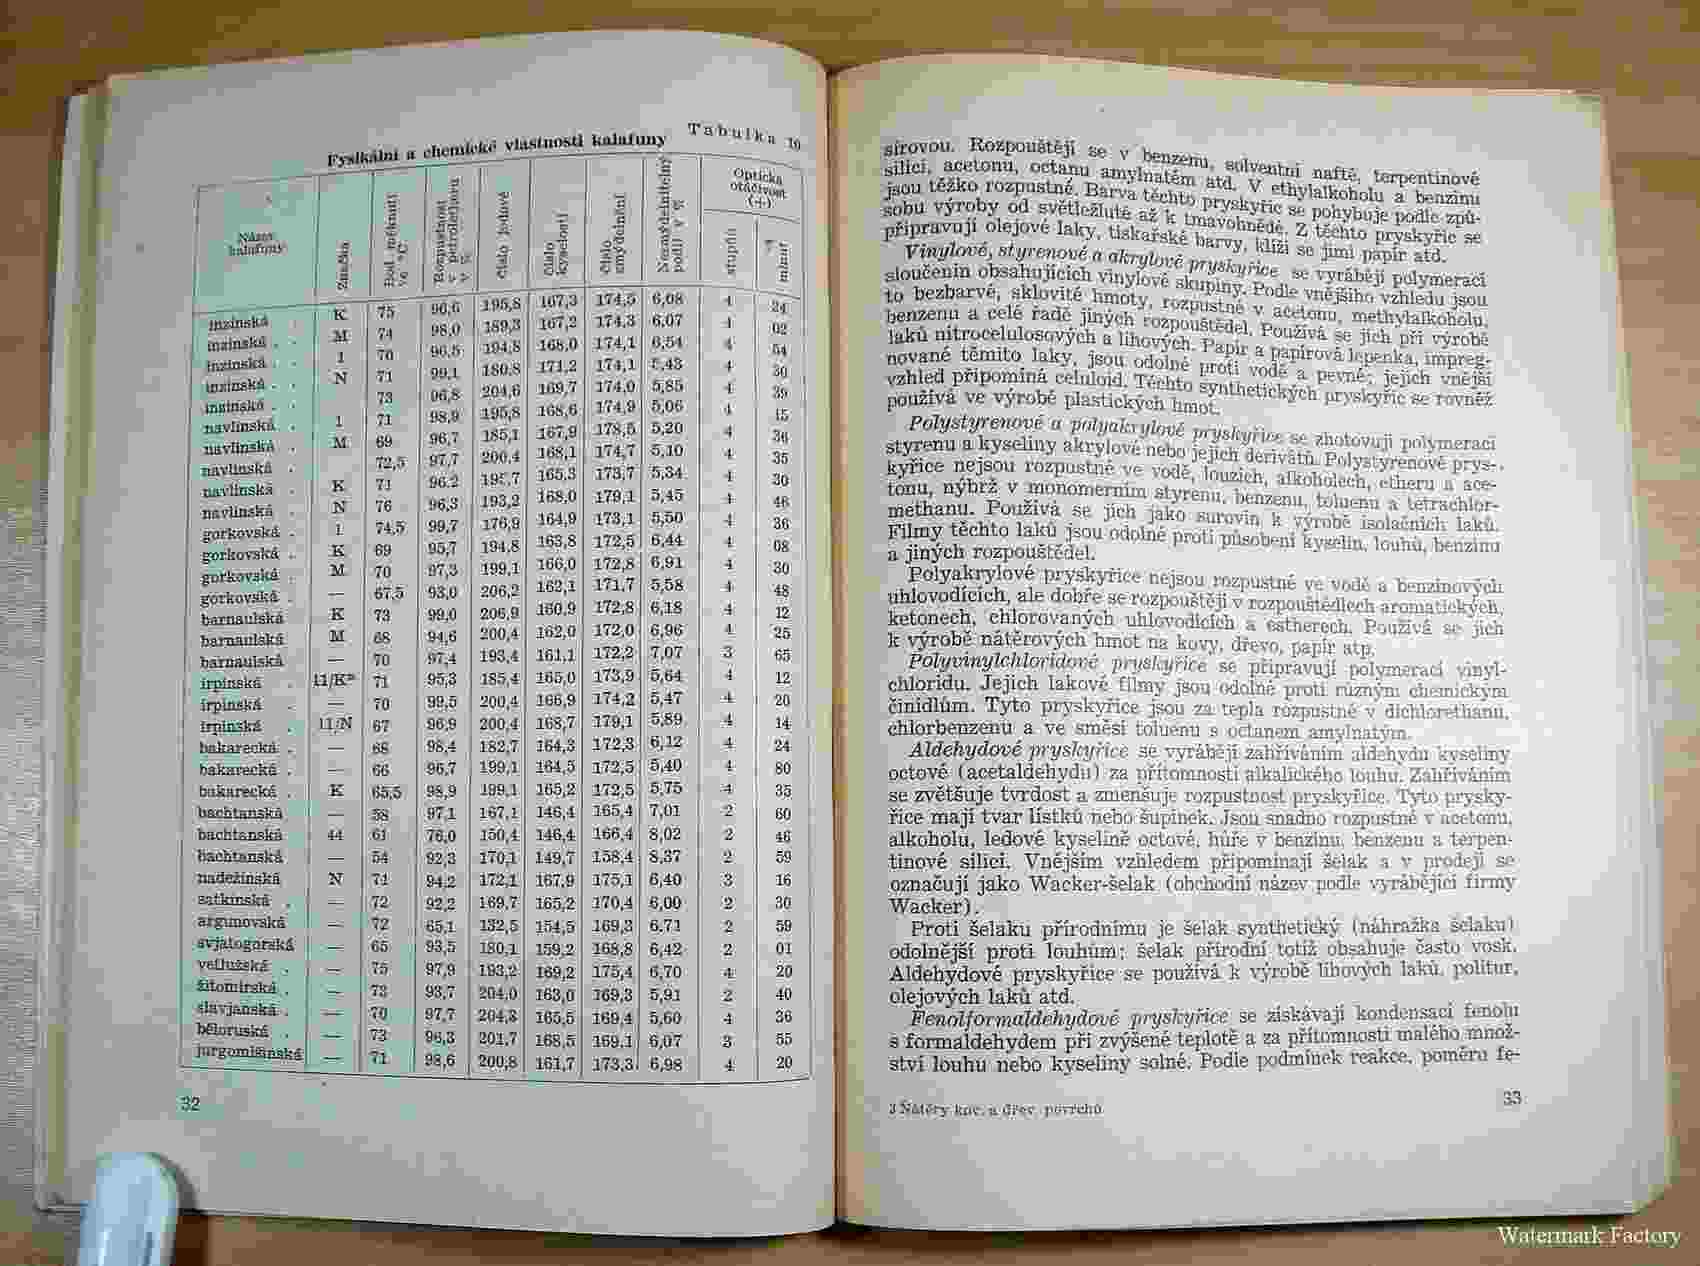 Tabulka 10
Fysikální a chemické vlastnosti kalafuny
Název kalafuny | Značka | Bod měknutí ve °C | Rozpustnost v petroletheru v % | Číslo jodové | Číslo kyselosti | Číslo zmýdelnění | Nezmýdelnitelný podíl v % | Optická otáčivost (+) stupňů | minut
inzinská . | K | 75 | 96,6 | 195,8 | 167,3 | 174,5 | 6,08 | 4 | 24
inzinská . . | M | 74 | 98,0 | 189,3 | 167,2 | 174,3 | 6,07 | 4 | 02
inzinská . . | I | 70 | 96,5 | 194,8 | 168,0 | 174,1 | 6,54 | 4 | 54
inzinská . . | N | 71 | 99,1 | 180,8 | 171,2 | 174,1 | 5,43 | 4 | 30
inzinská . . | 73 | 96,8 | 204,6 | 169,7 | 174,0 | 5,85 | 4 | 39
navlinská . | I | 71 | 98,9 | 195,8 | 168,6 | 174,9 | 5,06 | 4 | 15
navlinská . | M | 69 | 96,7 | 185,1 | 167,9 | 178,5 | 5,20 | 4 | 36
navlinská . | 72,5 | 97,7 | 200,4 | 168,1 | 174,7 | 5,10 | 4 | 35
navlinská . | K | 71 | 96,2 | 165,3 | 173,7 | 5,34 | 4 | 30
navlinská . | N | 76 | 96,3 | 193,2 | 168,0 | 179,1 | 5,45 | 4 | 46
gorkovská . | I | 74,5 | 99,7 | 176,9 | 164,9 | 173,1 | 5,50 | 4 | 36
gorkovská . | K | 69 | 95,7 | 194,8 | 163,8 | 172,5 | 6,44 | 4 | 08
gorkovská . | M | 70 | 97,3 | 199,1 | 166,0 | 172,8 | 6,91 | 4 | 30
gorkovská . | — | 67,5 | 93,0 | 206,2 | 162,1 | 171,7 | 5,58 | 4 | 48
barnaulská | K | 73 | 99,0 | 206,9 | 160,9 | 172,8 | 6,18 | 4 | 12
barnaulská | M | 68 | 94,6 | 200,4 | 162,0 | 172,0 | 6,96 | 4 | 25
barnaulská | — | 70 | 97,4 | 193,4 | 161,1 | 172,2 | 7,07 | 3 | 65
irpinská . | 71 | 95,3 | 185,4 | 165,0 | 173,9 | 5,64 | 4 | 12
irpinská . | — | 70 | 99,5 | 200,4 | 166,9 | 174,2 | 5,47 | 4 | 20
irpinská . | 11/N | 67 | 96,9 | 200,4 | 168,7 | 179,1 | 5,89 | 4 | 14
bakarecká . | — | 68 | 98,4 | 182,7 | 164,3 | 172,3 | 6,12 | 4 | 24
bakarecká . | — | 66 | 96,7 | 199,1 | 164,5 | 172,5 | 5,40 | 4 | 80
bakarecká . | K | 65,5 | 98,9 | 199,1 | 165,2 | 172,5 | 5,75 | 4 | 35
bachtanská | — | 58 | 97,1 | 167,1 | 146,4 | 165,4 | 7,01 | 2 | 60
bachtanská | 44 | 61 | 76,0 | 150,4 | 146,4 | 166,4 | 8,02 | 2 | 46
bachtanská | — | 54 | 92,3 | 170,1 | 149,7 | 158,4 | 8,37 | 2 | 59
nadežinská | N | 71 | 94,2 | 172,1 | 167,9 | 175,1 | 6,40 | 3 | 16
satkinská . | — | 72 | 92,2 | 169,7 | 165,2 | 170,4 | 6,00 | 2 | 30
argunovská | — | 72 | 65,1 | 132,5 | 154,5 | 169,3 | 6,71 | 2 | 59
svjatogorská | — | 65 | 93,5 | 180,1 | 159,2 | 168,8 | 6,42 | 2 | 01
vetlužská . | — | 75 | 97,9 | 193,2 | 169,2 | 175,4 | 6,70 | 4 | 20
žitomirská . | — | 73 | 93,7 | 204,0 | 163,0 | 169,3 | 5,91 | 2 | 40
slavjanská . | — | 70 | 97,7 | 204,3 | 165,5 | 169,4 | 5,60 | 4 | 36
běloruská . | — | 73 | 96,3 | 201,7 | 168,5 | 169,1 | 6,07 | 3 | 55
jurgomišinská | — | 71 | 98,6 | 200,8 | 161,7 | 173,3 | 6,98 | 4 | 20
32
sírovou. Rozpouštějí se v benzenu, solventní naftě, terpentinové
silici, acetonu, octanu amylnatém atd. V ethylalkoholu a benzinu
jsou těžko rozpustné. Barva těchto pryskyřic se pohybuje podle způ-
sobu výroby od světležluté až k tmavohnědé. Z těchto pryskyřic se
připravují olejové laky, tiskařské barvy, klíží se jimi papír atd.
Vinylové, styrenové a akrylové pryskyřice se vyrábějí polymerací
sloučenin obsahujících vinylové skupiny. Podle vnějšího vzhledu jsou
to bezbarvé, sklovité hmoty, rozpustné v acetonu, methylalkoholu,
benzenu a celé řadě jiných rozpouštědel. Používá se jich při výrobě
laků nitrocelulosových a lihových. Papír a papírová lepenka, impreg-
nované těmito laky, jsou odolné proti vodě a pevné; jejich vnější
vzhled připomíná celuloid. Těchto synthetických pryskyřic se rovněž
používá ve výrobě plastických hmot.
Polystyrenové a polyakrylové pryskyřice se zhotovují polymerací
styrenu a kyseliny akrylové nebo jejich derivátů. Polystyrenové prys-
kyřice nejsou rozpustné ve vodě, louzích, alkoholech, etheru a ace-
tonu, nýbrž v monomerním styrenu, benzenu, toluenu a tetrachlor-
methanu. Používá se jich jako surovin k výrobě isolačních laků.
Filmy těchto laků jsou odolné proti působení kyselin, louhů, benzinu
a jiných rozpouštědel.
Polyakrylové pryskyřice nejsou rozpustné ve vodě a benzinových
uhlovodících, ale dobře se rozpouštějí v rozpouštědlech aromatických,
ketonech, chlorovaných uhlovodících a estherech. Používá se jich
k výrobě nátěrových hmot na kovy, dřevo, papír atp.
Polyvinylchloridové pryskyřice se připravují polymerací vinyl-
chloridu. Jejich lakové filmy jsou odolné proti různým chemickým
činidlům. Tyto pryskyřice jsou za tepla rozpustné v dichlorethanu,
chlorbenzenu a ve směsi toluenu s octanem amylnatým.
Aldehydové pryskyřice se vyrábějí zahříváním aldehydu kyseliny
octové (acetaldehydu) za přítomnosti alkalického louhu. Zahříváním
se zvětšuje tvrdost a zmenšuje rozpustnost pryskyřice. Tyto prysky-
řice mají tvar lístků nebo šupinek. Jsou snadno rozpustné v acetonu,
alkoholu, ledové kyselině octové, hůře v benzinu, benzenu a terpen-
tinové silici. Vnějším vzhledem připomínají šelak a v prodeji se
označují jako Wacker-šelak (obchodní název podle vyrábějící firmy
Wacker).
Proti šelaku přírodnímu je šelak synthetický (náhražka šelaku)
odolnější proti louhům; šelak přírodní totiž obsahuje často vosk.
Aldehydové pryskyřice se používá k výrobě lihových laků, politur,
olejových laků atd.
Fenolformaldehydové pryskyřice se získávají kondensací fenolu
s formaldehydem při zvýšené teplotě a za přítomnosti malého množ-
ství louhu nebo kyseliny solné. Podle podmínek reakce, poměru fe-
3 Nátěry kov. a dřev. povrchů
33
Watermark Factory